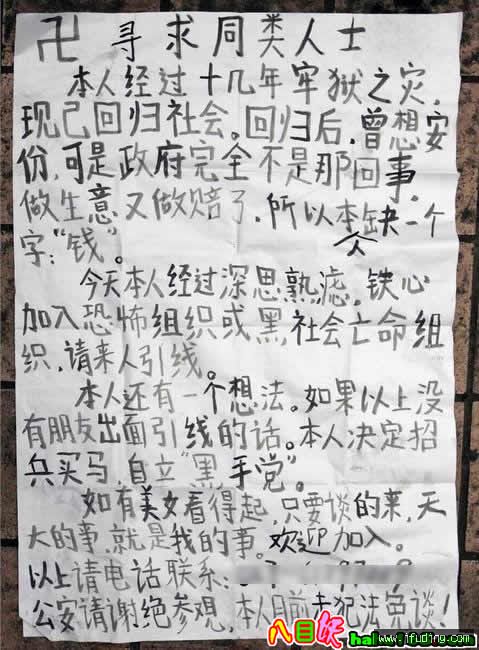 卍 寻求同类人士
本人经过十几年牢狱之灾,
现已回归社会。回归后,曾想安
份,可是政府完全不是那回事。
做生意又做赔了,所以本人缺一个
字:“钱”。
今天本人经过深思熟虑,铁心
加入恐怖组织或黑社会亡命组
织,请来人引线。
本人还有一个想法。如果以上没
有朋友出面引线的话。本人决定招
兵买马,自立“黑手党”。
如有美女看得起,只要谈的来,天
大的事,就是我的事。欢迎加入。
以上请电话联系:
公安请谢绝参观,本人目前未犯法免谈!
八目妖
www.ifuding.com